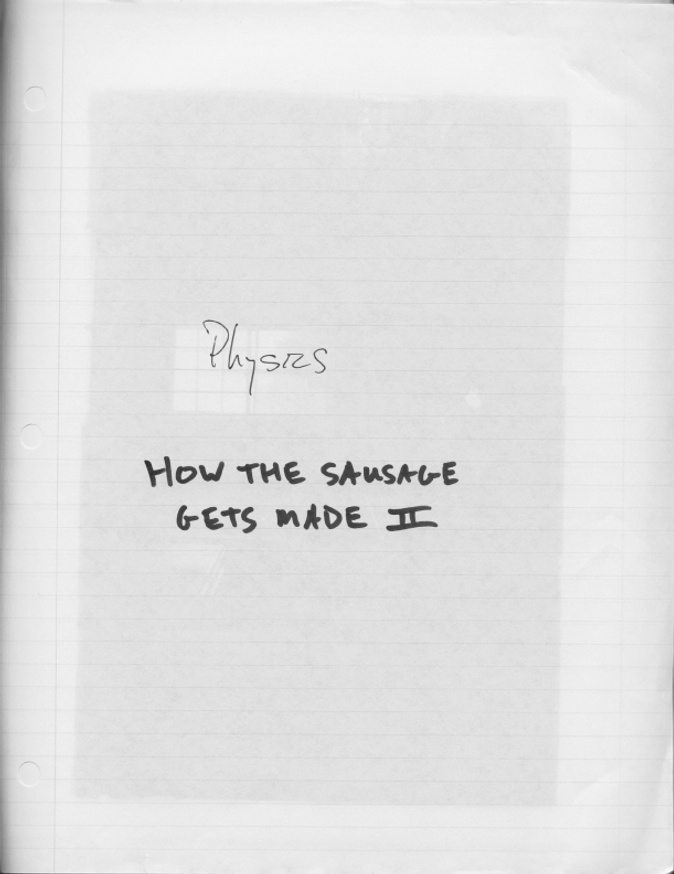 Physics
HOW THE SAUSAGE
GETS MADE II